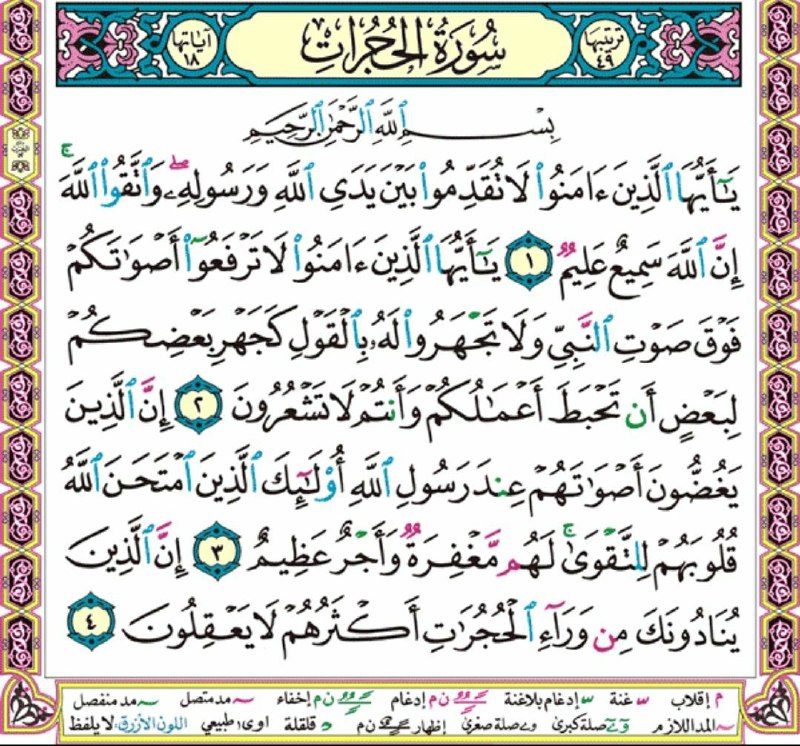 ترتيبها ٤٩ سُورَةُ الحُجُرَاتِ آياتها ١٨
بِسْمِ ٱللَّهِ ٱلرَّحْمَٰنِ ٱلرَّحِيمِ
يَـٰٓأَيُّهَا ٱلَّذِينَ ءَامَنُوا۟ لَا تُقَدِّمُوا۟ بَيْنَ يَدَىِ ٱللَّهِ وَرَسُولِهِۦ ۖ وَٱتَّقُوا۟ ٱللَّهَ ۚ
إِنَّ ٱللَّهَ سَمِيعٌ عَلِيمٌ ١ يَـٰٓأَيُّهَا ٱلَّذِينَ ءَامَنُوا۟ لَا تَرْفَعُوٓا۟ أَصْوَٰتَكُمْ
فَوْقَ صَوْتِ ٱلنَّبِىِّ وَلَا تَجْهَرُوا۟ لَهُۥ بِٱلْقَوْلِ كَجَهْرِ بَعْضِكُمْ
لِبَعْضٍ أَن تَحْبَطَ أَعْمَـٰلُكُمْ وَأَنتُمْ لَا تَشْعُرُونَ ٢ إِنَّ ٱلَّذِينَ
يَغُضُّونَ أَصْوَٰتَهُمْ عِندَ رَسُولِ ٱللَّهِ أُو۟لَـٰٓئِكَ ٱلَّذِينَ ٱمْتَحَنَ ٱللَّهُ
قُلُوبَهُمْ لِلتَّقْوَىٰ ۚ لَهُم مَّغْفِرَةٌ وَأَجْرٌ عَظِيمٌ ٣ إِنَّ ٱلَّذِينَ
يُنَادُونَكَ مِن وَرَآءِ ٱلْحُجُرَٰتِ أَكْثَرُهُمْ لَا يَعْقِلُونَ ٤
م إقلاب غنة إدغام بلاغنة ن م إدغام ن م إخفاء مد متصل مد منفصل
المد اللازم صلة كبرى صلة صغرى إظهار ن م قلقلة اوى: طبيعي اللون الأزرق: لا يلفظ